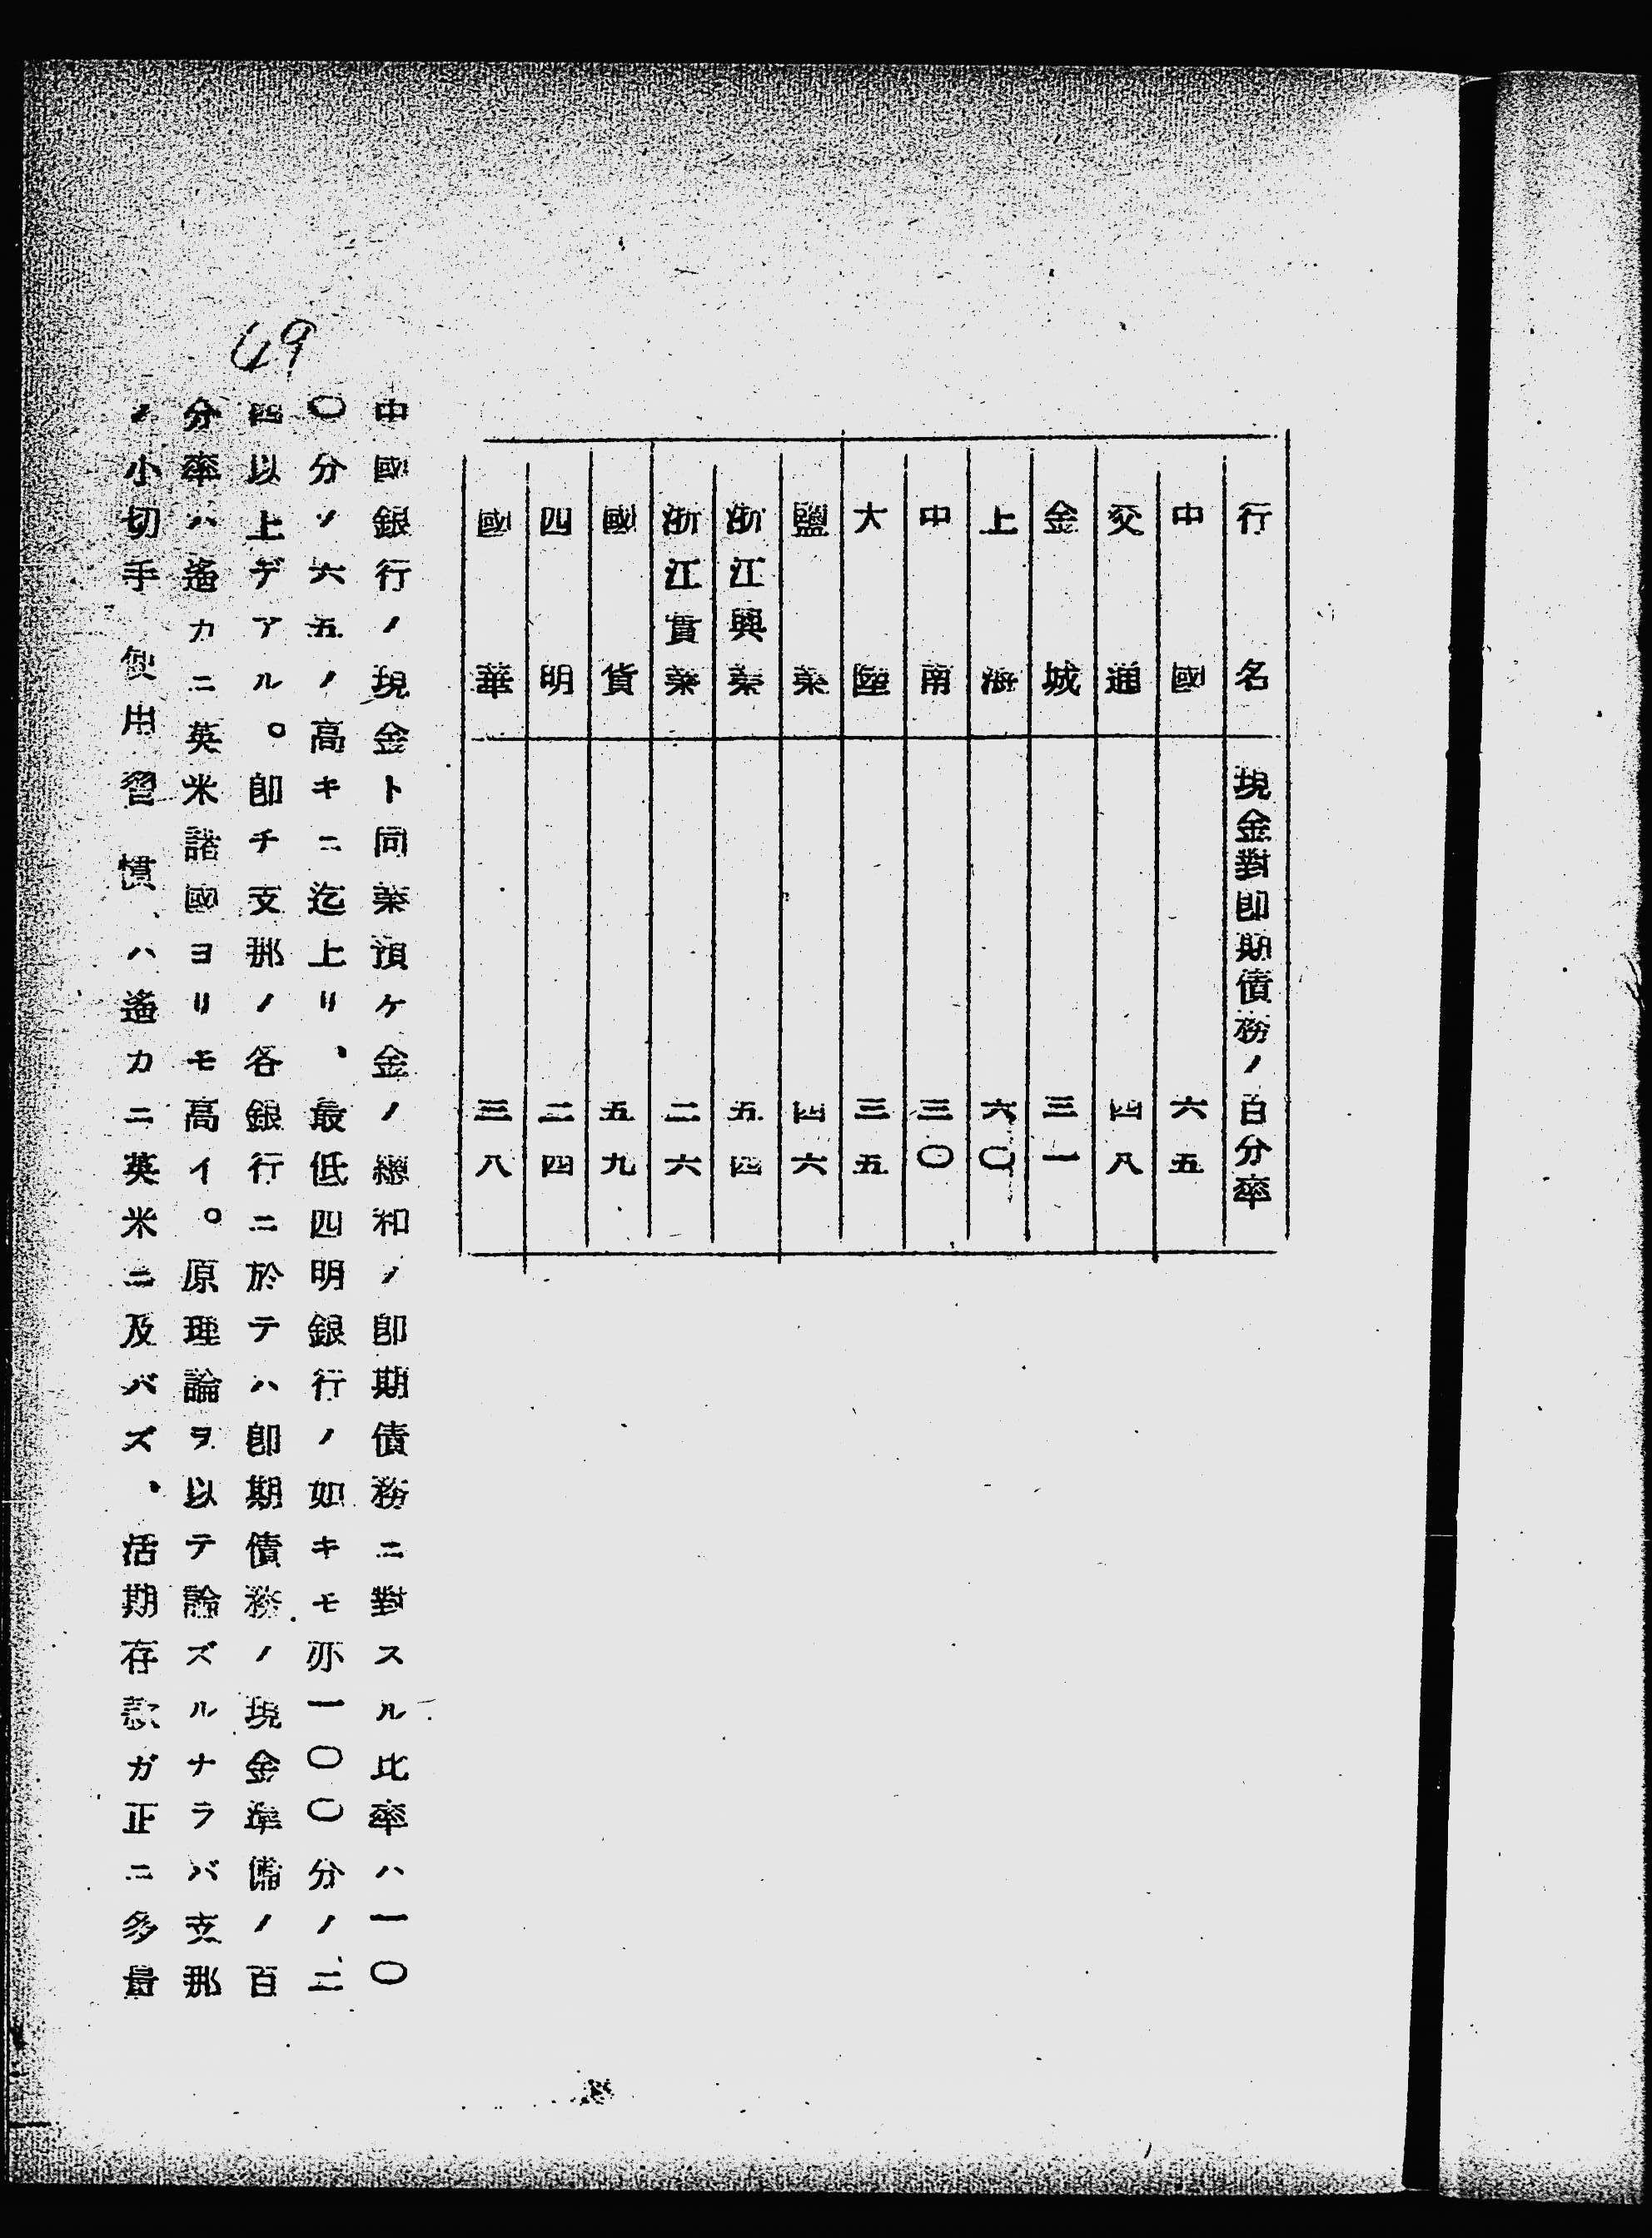 行名 現金對即期債務ノ百分率
中國 六五
交通 四八
金城 三一
上海 六〇
中南 三〇
大陸 三五
鹽業 四六
浙江興業 五四
浙江實業 二六
國貨 五九
四明 二四
國華 三八
中國銀行ノ現金ト同業預ケ金ノ總和ノ即期債務ニ對スル比率ハ一〇
〇分ノ六五ノ高キニ迄上リ、最低四明銀行ノ如キモ亦一〇〇分ノ二
四以上デアル。即チ支那ノ各銀行ニ於テハ即期債務ノ現金準備ノ百
分率ハ遙カニ英米諸國ヨリモ高イ。原理論ヲ以テ論ズルナラバ支那
ノ小切手使用習慣、ハ遙カニ英米ニ及バズ、活期存款ガ正ニ多量
49